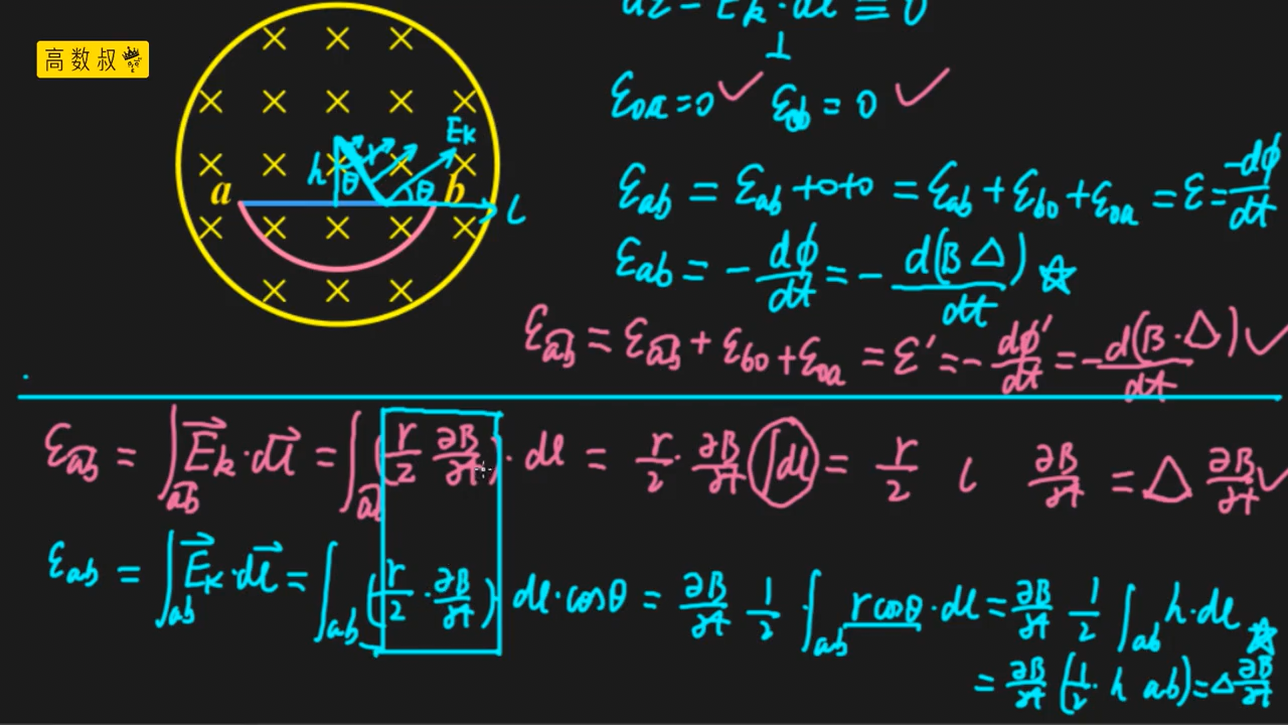 高数叔
dε = Ek·dl ≡ 0
⊥
ε_oa = 0 ✓ ε_ob = 0 ✓
h r θ θ Ek a b l
ε_ab = ε_ab + 0 + 0 = ε_ab + ε_bo + ε_oa = ε = -dϕ/dt
ε_ab = - dϕ/dt = - d(B△)/dt ☆
ε_a͡b = ε_a͡b + ε_bo + ε_oa = ε' = - dϕ'/dt = - d(B·△)/dt ✓
ε_a͡b = ∫_a͡b E⃗k·dl⃗ = ∫_a͡b (r/2 ∂B/∂t)·dl = r/2·∂B/∂t ∫dl = r/2 l ∂B/∂t = △ ∂B/∂t ✓
ε_ab = ∫_ab E⃗k·dl⃗ = ∫_ab (r/2·∂B/∂t) dl·cosθ = ∂B/∂t 1/2·∫_ab rcosθ·dl = ∂B/∂t 1/2 ∫_ab h·dl ☆
= ∂B/∂t (1/2·h ab) = △ ∂B/∂t